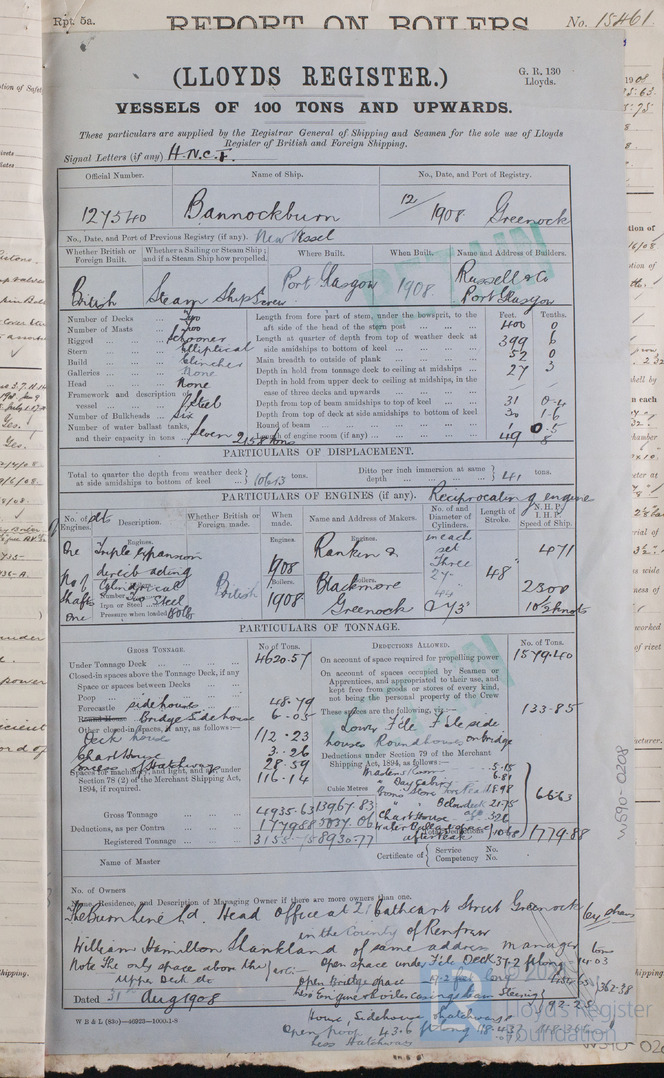 Rpt. 5a.
REPORT ON BOILERS
No. 15461
(LLOYDS REGISTER.)
G. R. 130
Lloyds.
VESSELS OF 100 TONS AND UPWARDS.
These particulars are supplied by the Registrar General of Shipping and Seamen for the sole use of Lloyds
Register of British and Foreign Shipping.
Signal Letters (if any) H.N.C.F.
Official Number. Name of Ship. No., Date, and Port of Registry.
127540 Bannockburn 12/1908 Greenock
No., Date, and Port of Previous Registry (if any). New Vessel
Whether British or Foreign Built. Whether a Sailing or Steam Ship; and if a Steam Ship how propelled. Where Built. When Built. Name and Address of Builders.
British Steam Ship Screw Port Glasgow 1908. Russell & Co Port Glasgow
RETAIN
Number of Decks ... Two
Number of Masts ... Two
Rigged ... Schooner
Stern ... Elliptical
Build ... Clincher
Galleries ... None
Head ... None
Framework and description of vessel ... Steel
Number of Bulkheads ... Six
Number of water ballast tanks, and their capacity in tons ... Seven 2158 tons
Feet. Tenths.
Length from fore part of stem, under the bowsprit, to the aft side of the head of the stern post ... 400 0
Length at quarter of depth from top of weather deck at side amidships to bottom of keel ... 399 6
Main breadth to outside of plank ... 52 0
Depth in hold from tonnage deck to ceiling at midships ... 27 3
Depth in hold from upper deck to ceiling at midships, in the case of three decks and upwards ...
Depth from top of beam amidships to top of keel ... 31 0.4
Depth from top of deck at side amidships to bottom of keel 30 1.6
Round of beam ... 1 0.5
Length of engine room (if any) ... 49 8
PARTICULARS OF DISPLACEMENT.
Total to quarter the depth from weather deck at side amidships to bottom of keel ... 10613 tons.
Ditto per inch immersion at same depth ... 41 tons.
PARTICULARS OF ENGINES (if any). Reciprocating engine
No. of sets of Engines. Description. Whether British or Foreign made. When made. Name and Address of Makers. No. of and Diameter of Cylinders. Length of Stroke. N.H.P. I.H.P. Speed of Ship.
One Triple expansion direct acting
No of Shafts One
Engines. 1908 Rankin &
in each set Three 27" 44 & 73" 48" 471
Boilers. Cylindrical
Number Two
Iron or Steel ... Steel
Pressure when loaded 180 lb
British
Boilers. 1908. Blackmore Greenock
2300
10½ knots
PARTICULARS OF TONNAGE.
GROSS TONNAGE. No. of Tons.
Under Tonnage Deck ... 4620.57
Closed-in spaces above the Tonnage Deck, if any
Space or spaces between Decks ...
Poop ...
Forecastle side houses 48.79
Round House Bridge Side house 6.05
Other closed-in spaces, if any, as follows:—
Deck houses 112.23
Chart House 3.26
Excess of Hatchways 28.59
Spaces for machinery, and light, and air, under Section 78 (2) of the Merchant Shipping Act, 1894, if required. 116.14
Gross Tonnage 4935.63 13967.83
Deductions, as per Contra 1779.88 5037.06
Registered Tonnage 3155.75 8930.77
DEDUCTIONS ALLOWED. No. of Tons.
On account of space required for propelling power 1579.40
On account of spaces occupied by Seamen or Apprentices, and appropriated to their use, and kept free from goods or stores of every kind, not being the personal property of the Crew
These spaces are the following, viz.:— 133.85
Lower F'cle F'cle side houses Roundhouse on bridge
Deductions under Section 79 of the Merchant Shipping Act, 1894, as follows:—
Masters Room 5.15
6.81
Cubic Metres
Bosns Store 18.98
Below deck 21.75
Chart House 3.26
Water Ballast space after Peak 10.68
66.63
Total Deductions 1779.88
Name of Master
Certificate of Service No.
Competency No.
No. of Owners
Name, Residence, and Description of Managing Owner if there are more owners than one.
The Burn Line Ld. Head Office at 21 Cathcart Street Greenock
in the County of Renfrew
William Hamilton Shankland of same address manager
Note The only space above the Upper Deck etc
Open space under F'cle Deck 37.2 ft long
Open Bridge space
Less Engine & boiler casings
362.38
92.28
Dated 31st Aug 1908
House, Side house & hatchways
Open poop 43.6 ft long
Less Hatchways
W B & L (830)—46923—1000-1-8
W590-0208
© 2021
Lloyd's Register
Foundation